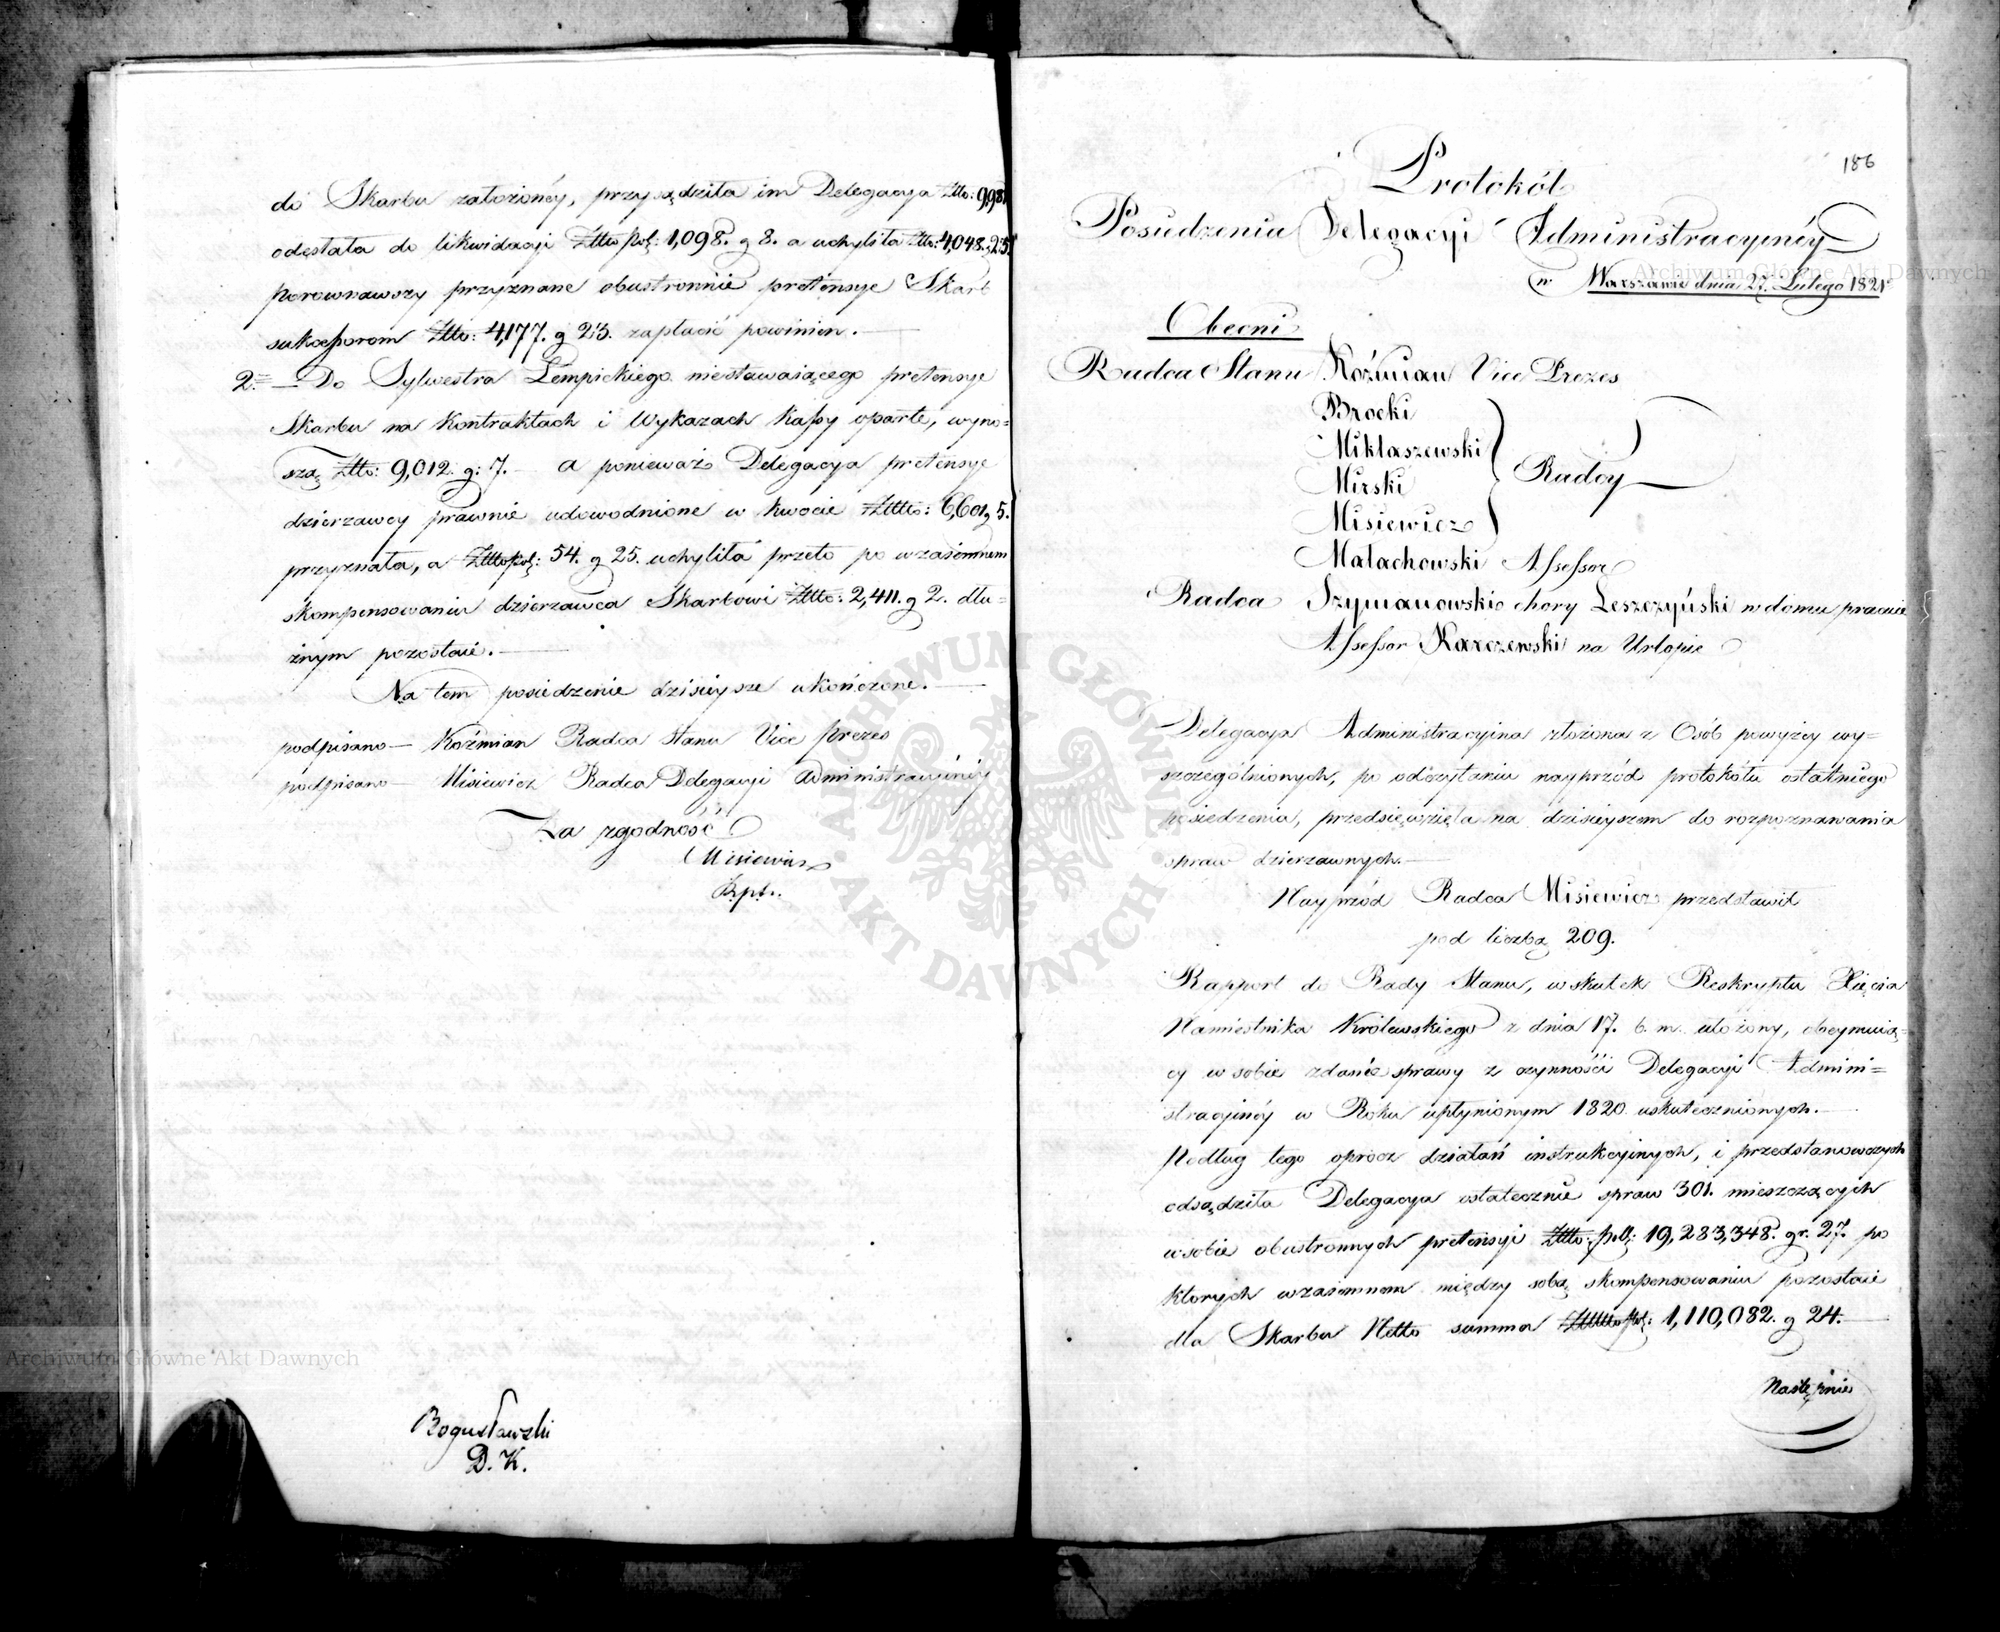 do Skarbu założonéy, przysądziła im Delegacya Złło: 9,98
odesłała do likwidacyi Złło pol: 1,098. g 8. a uchyliła Złło: 4,048. 25.
porownawszy przyznane obustronnie pretensye Skarb
sukcessorom Złło: 4,177. g 23. zapłacić powinien.
2. Do Sylwestra Łempickiego niestawaiącego pretensye
Skarbu na Kontraktach i Wykazach Kassy oparte, wyno=
szą Złło: 9,012. g: 7. a ponieważ Delegacya pretensye
dzierzawcy prawnie udowodnione w kwocie Złło: 6,601, 5.
przyznała, a Złło pol: 54. g 25. uchyliła przeto po wzaiemnem
skompensowaniu dzierzawca Skarbowi Złło: 2,411. g 2. dłu=
żnym pozostaie.
Na tem posiedzenie dzisieysze ukończone.
podpisano Koźmian Radca Stanu Vice Prezes
podpisano Misiewicz Radca Delegacyi Administracyinéy
Za zgodność
Misiewicz
Bogusławski
D. K.
186
Protokół
Posiedzenia Delegacyi Administracyinéy
w Warszawie dnia 27. Lutego 1821
Obecni
Radca Stanu Koźmian Vice Prezes
Brocki
Miklaszewski
Mirski
Radcy
Misiewicz
Małachowski Assessor
Radca Szymanowski chory Leszczyński w domu pracuie
Assessor Karczewski na Urlopie
Delegacya Administracyina złożona z Osób powyżéy wy=
szczególnionych, po odczytaniu nayprzód protokółu ostatniego
posiedzenia, przedsięwzięła na dzisieyszem do rozpoznawania
spraw dzierzawnych.
Nayprzód Radca Misiewicz przedstawił
pod liczbą 209.
Rapport do Rady Stanu, w skutek Reskryptu Xięcia
Namiestnika Królewskiego z dnia 17. b. m. ułożony, obeymuią=
cy w sobie zdanie sprawy z czynności Delegacyi Admini=
stracyinéy w Roku upłynionym 1820 uskutecznionych.
Podług tego oprócz działań instrukcyinych, i przedstanowczych
odsądziła Delegacya ostatecznie spraw 301. mieszczących
w sobie obustronnych pretensyi Złło: pol: 19,283,348. gr. 27. po
ktorych wzaiemnem między sobą skompensowaniu pozostaie
dla Skarbu Netto summa Złło pol: 1,110,082. g 24.
Następnie
Archiwum Główne Akt Dawnych
Archiwum Główne Akt Dawnych
ARCHIWUM GŁÓWNE AKT DAWNYCH